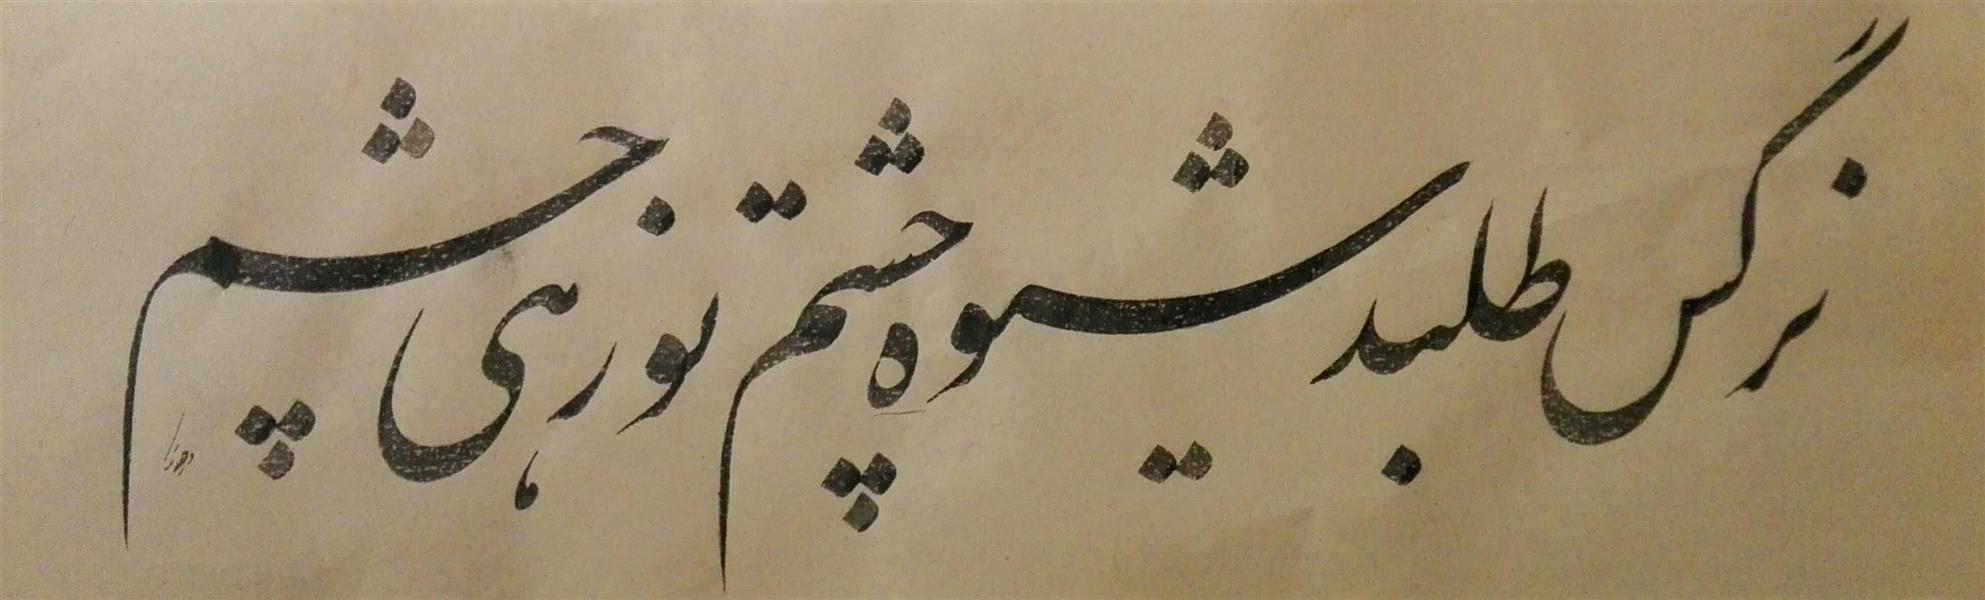 نرگس طلبد شیوهٔ چشم تو زهی چشم